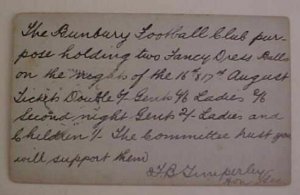 The Bunbury Football Club pur-
pose holding two Fancy Dress Balls
on the nights of the 16th & 17th August
Tickets Double 5/- Gents 3/6 Ladies 2/6
Second night Gents 2/- Ladies and
Children 1/- The Committee trust you
will support them
H. B. Timperley
Hon Sec